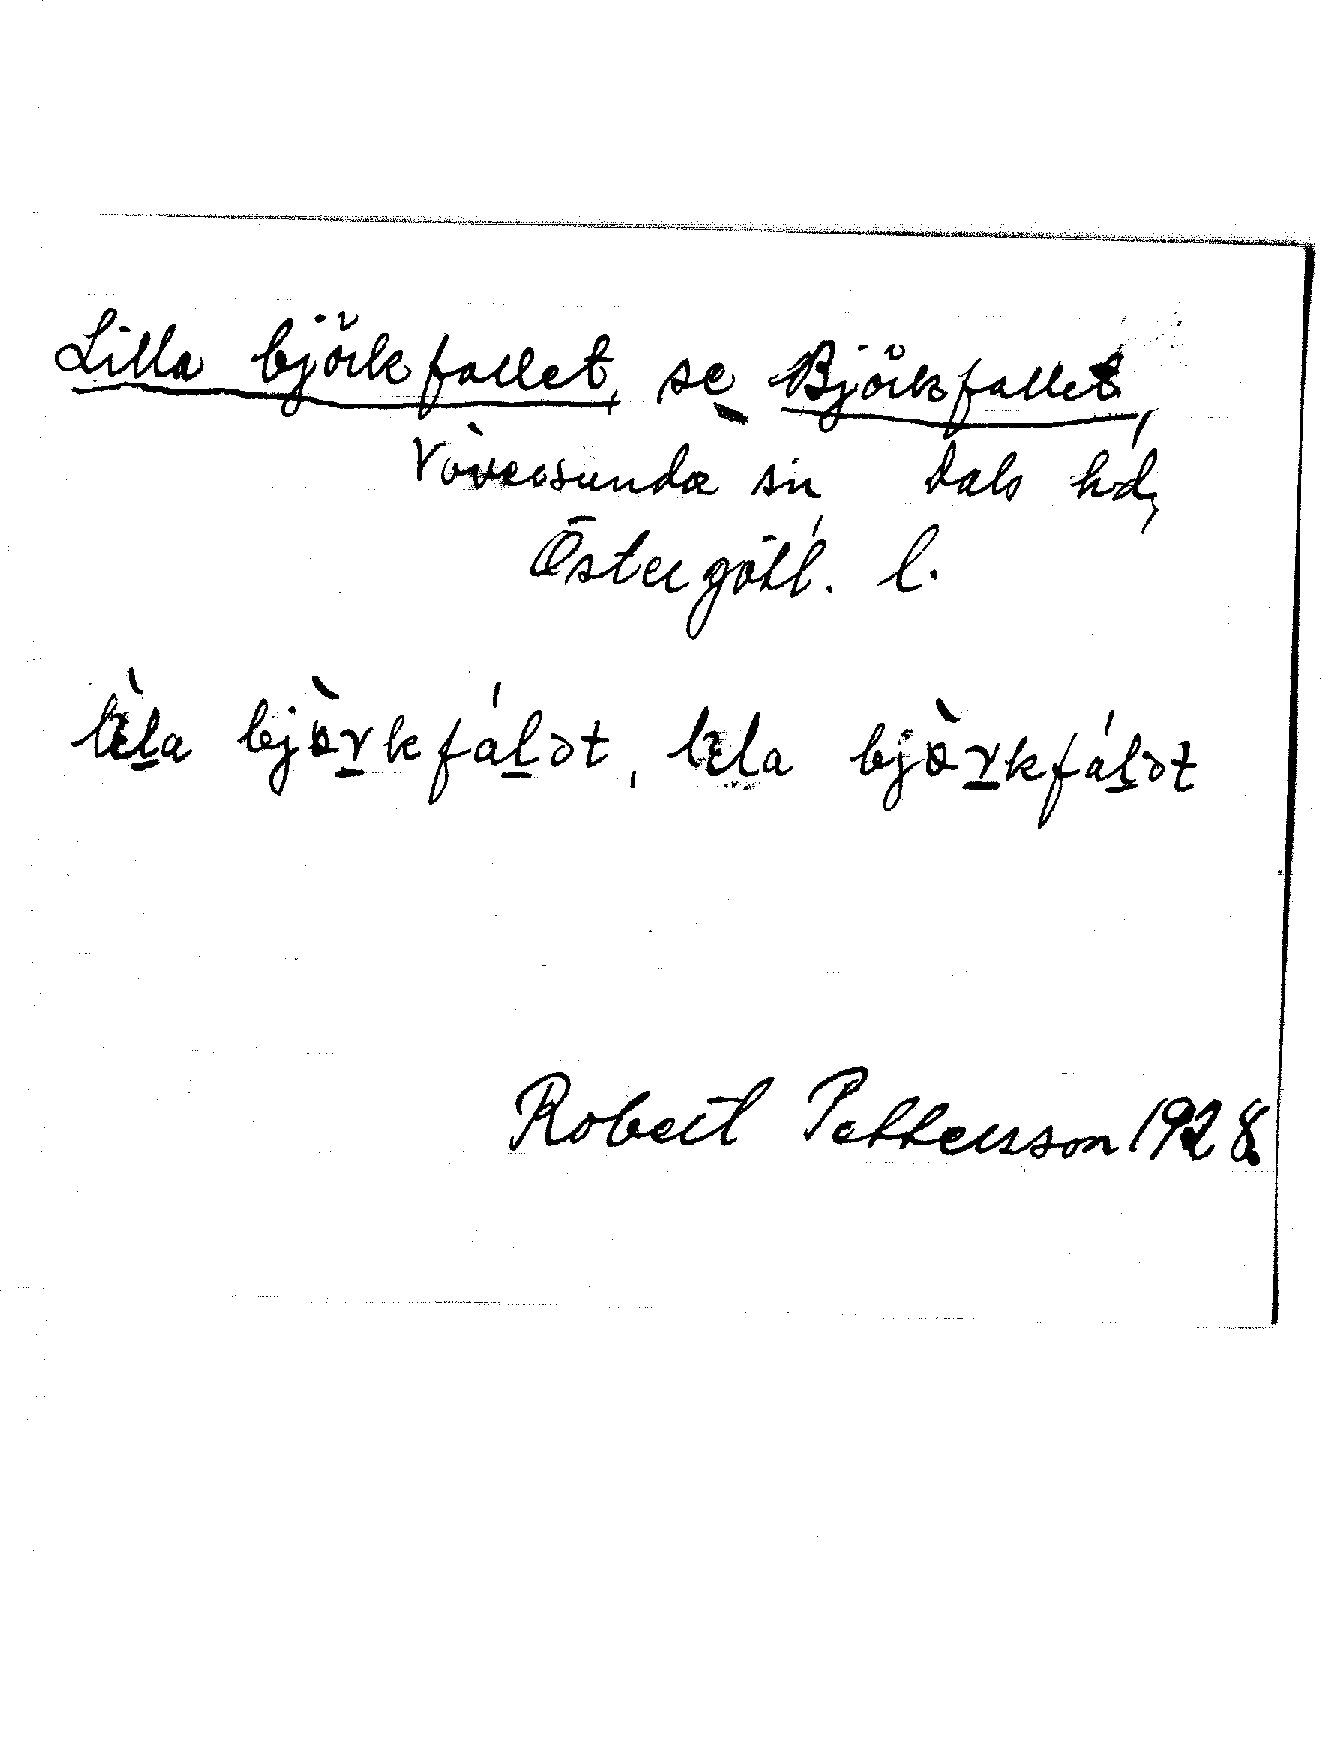 Lilla björkfallet, se Björkfallet,
Väversunda sn, Dals hd,
Östergötl. l.
lèḻa bjò̈ṟkfáḻət, lɛla bjò̈ṟkfáḻət
Robert Pettersson 1928.